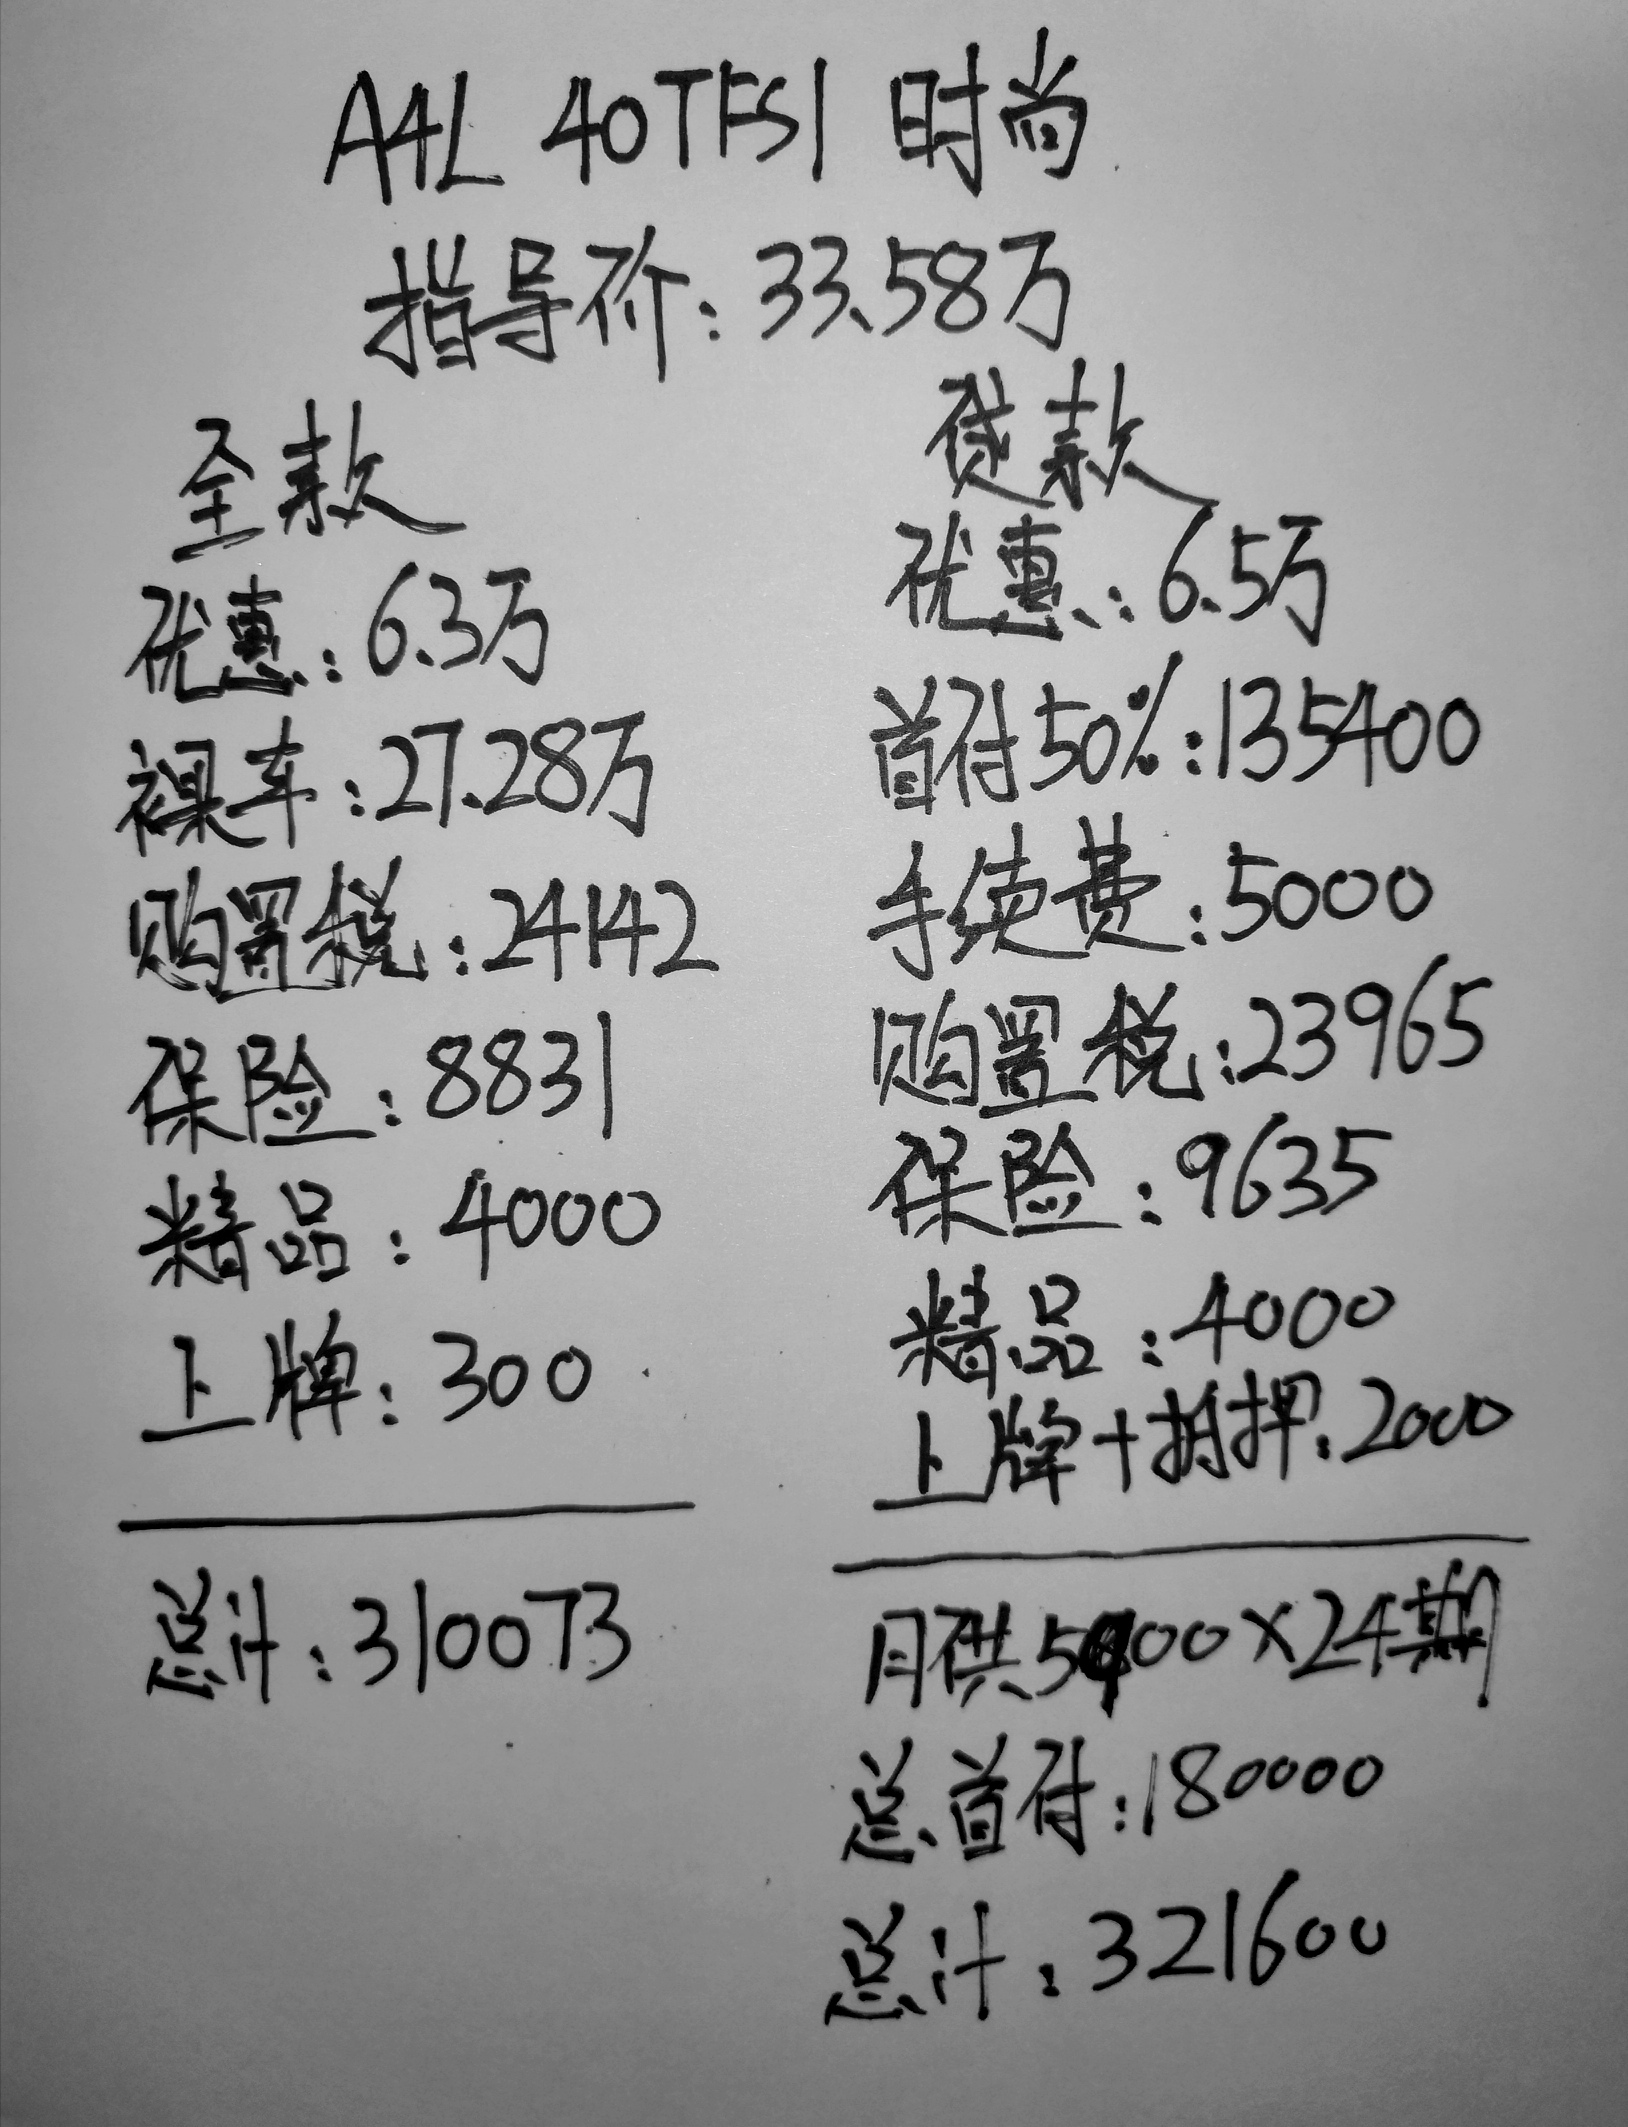 A4L 40TFSI 时尚
指导价:33.58万
全款
优惠:6.3万
裸车:27.28万
购置税:24142
保险:8831
精品:4000
上牌:300
总计:310073
贷款
优惠:6.5万
首付50%:135400
手续费:5000
购置税:23965
保险:9635
精品:4000
上牌+抵押:2000
月供5900×24期
总首付:180000
总计:321600